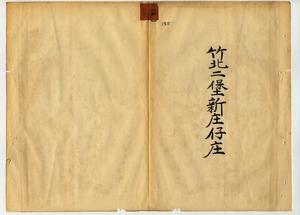 竹北二堡新庄仔庄